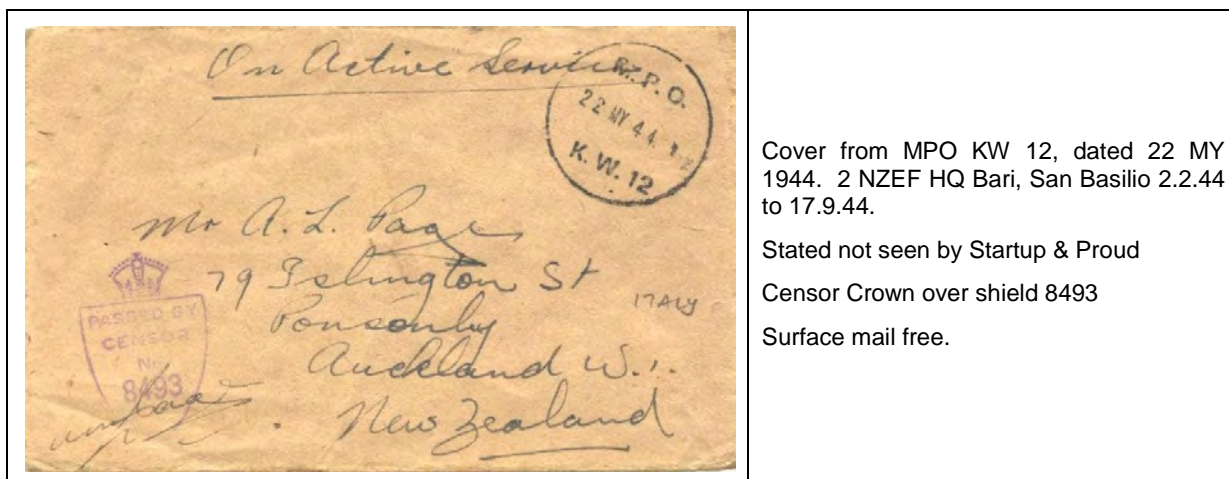 On Active Service
M.P.O.
22 MY 44
K.W.12
Mr A. L. Page
79 Islington St
Ponsonby
Auckland W.1.
New Zealand
ITALY
PASSED BY
CENSOR
No
8493
Page
Cover from MPO KW 12, dated 22 MY
1944. 2 NZEF HQ Bari, San Basilio 2.2.44
to 17.9.44.
Stated not seen by Startup & Proud
Censor Crown over shield 8493
Surface mail free.